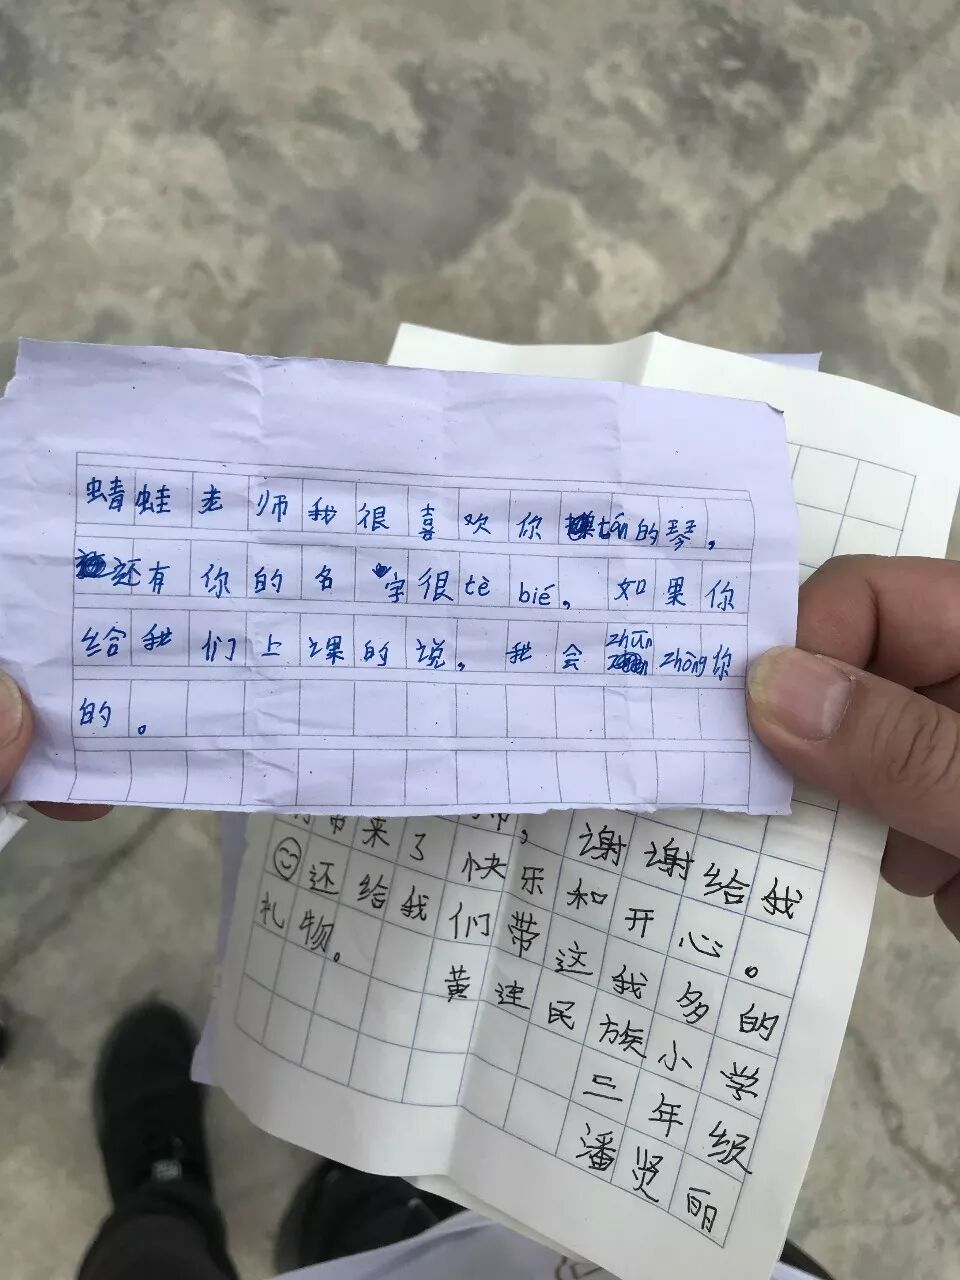 蜻蛙老师我很喜欢你tán的琴，
还有你的名字很tè bié。如果你
给我们上课的说，我会zhūn zhōng你
的。
带来了
谢谢给我
快乐和开心。
😊还给我们带这我多的
礼物。
黄连民族小学
二年级
潘贤丽